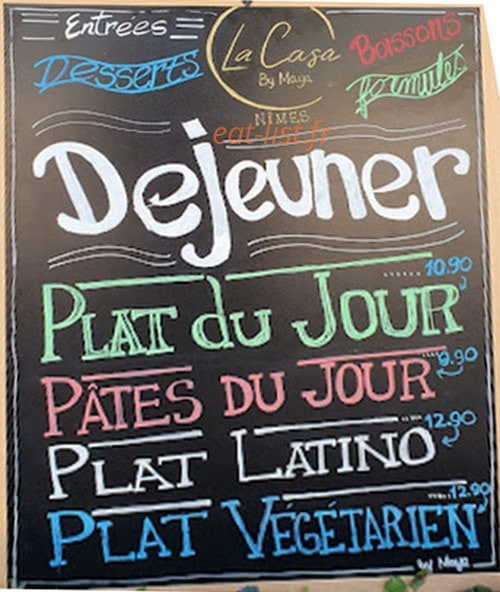 Entrées
La Casa
Boissons
Desserts
By Maya
formules
NÎMES
eat-list.fr
Dejeuner
10.90
PLAT du JOUR
9.90
PÂTES DU JOUR
12.90
PLAT LATINO
12.90
PLAT VÉGÉTARIEN
by Maya